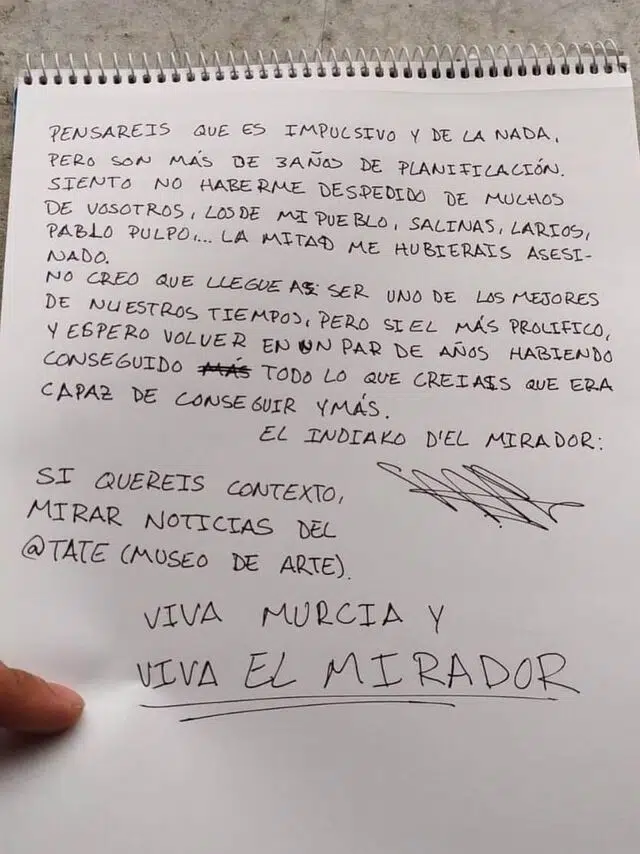 PENSAREIS QUE ES IMPULSIVO Y DE LA NADA,
PERO SON MÁS DE 3 AÑOS DE PLANIFICACIÓN.
SIENTO NO HABERME DESPEDIDO DE MUCHOS
DE VOSOTROS, LOS DE MI PUEBLO, SALINAS, LARIOS,
PABLO PULPO,... LA MITAD ME HUBIERAIS ASESI-
NADO.
NO CREO QUE LLEGUE A SER UNO DE LOS MEJORES
DE NUESTROS TIEMPOS, PERO SI EL MÁS PROLIFICO,
Y ESPERO VOLVER EN UN PAR DE AÑOS HABIENDO
CONSEGUIDO MÁS TODO LO QUE CREIAIS QUE ERA
CAPAZ DE CONSEGUIR Y MÁS.
EL INDIAKO D'EL MIRADOR:
SI QUEREIS CONTEXTO,
MIRAR NOTICIAS DEL
@TATE (MUSEO DE ARTE).
VIVA MURCIA Y
VIVA EL MIRADOR